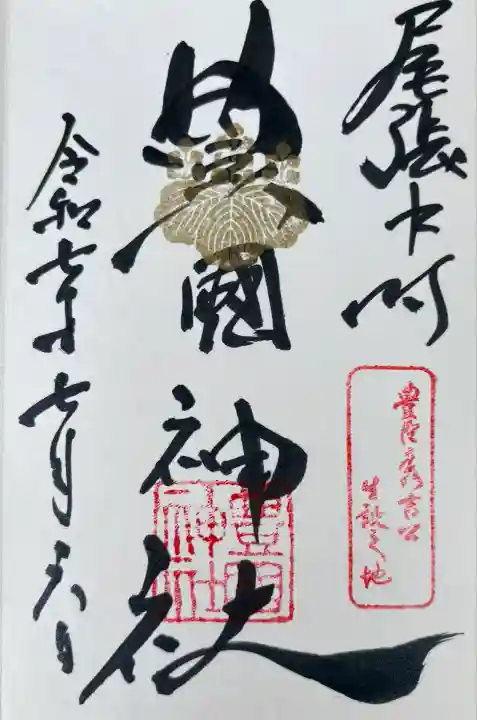 尾張中村
豊臣秀吉公
生誕之地
豊國神社
豊国神社
令和七年七月二六日